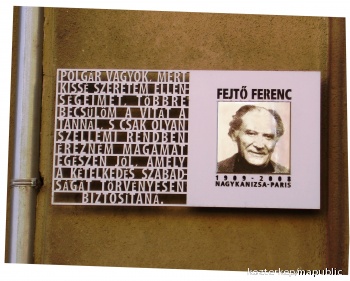 POLGÁR VAGYOK, MERT
KISSÉ SZERETEM ELLEN-
SÉGEIMET. TÖBBRE
BECSÜLÖM A VITÁT A
TÁMADÁSNÁL, S CSAK OLYAN
SZELLEMI RENDBEN
ÉREZNÉM MAGAMAT
EGÉSZEN JÓL, AMELY
A KÉTELKEDÉS SZABAD-
SÁGÁT TÖRVÉNYESEN
BIZTOSÍTANÁ.
FEJTŐ FERENC
1909-2008
NAGYKANIZSA-PÁRIS
kozterkep/mapublic